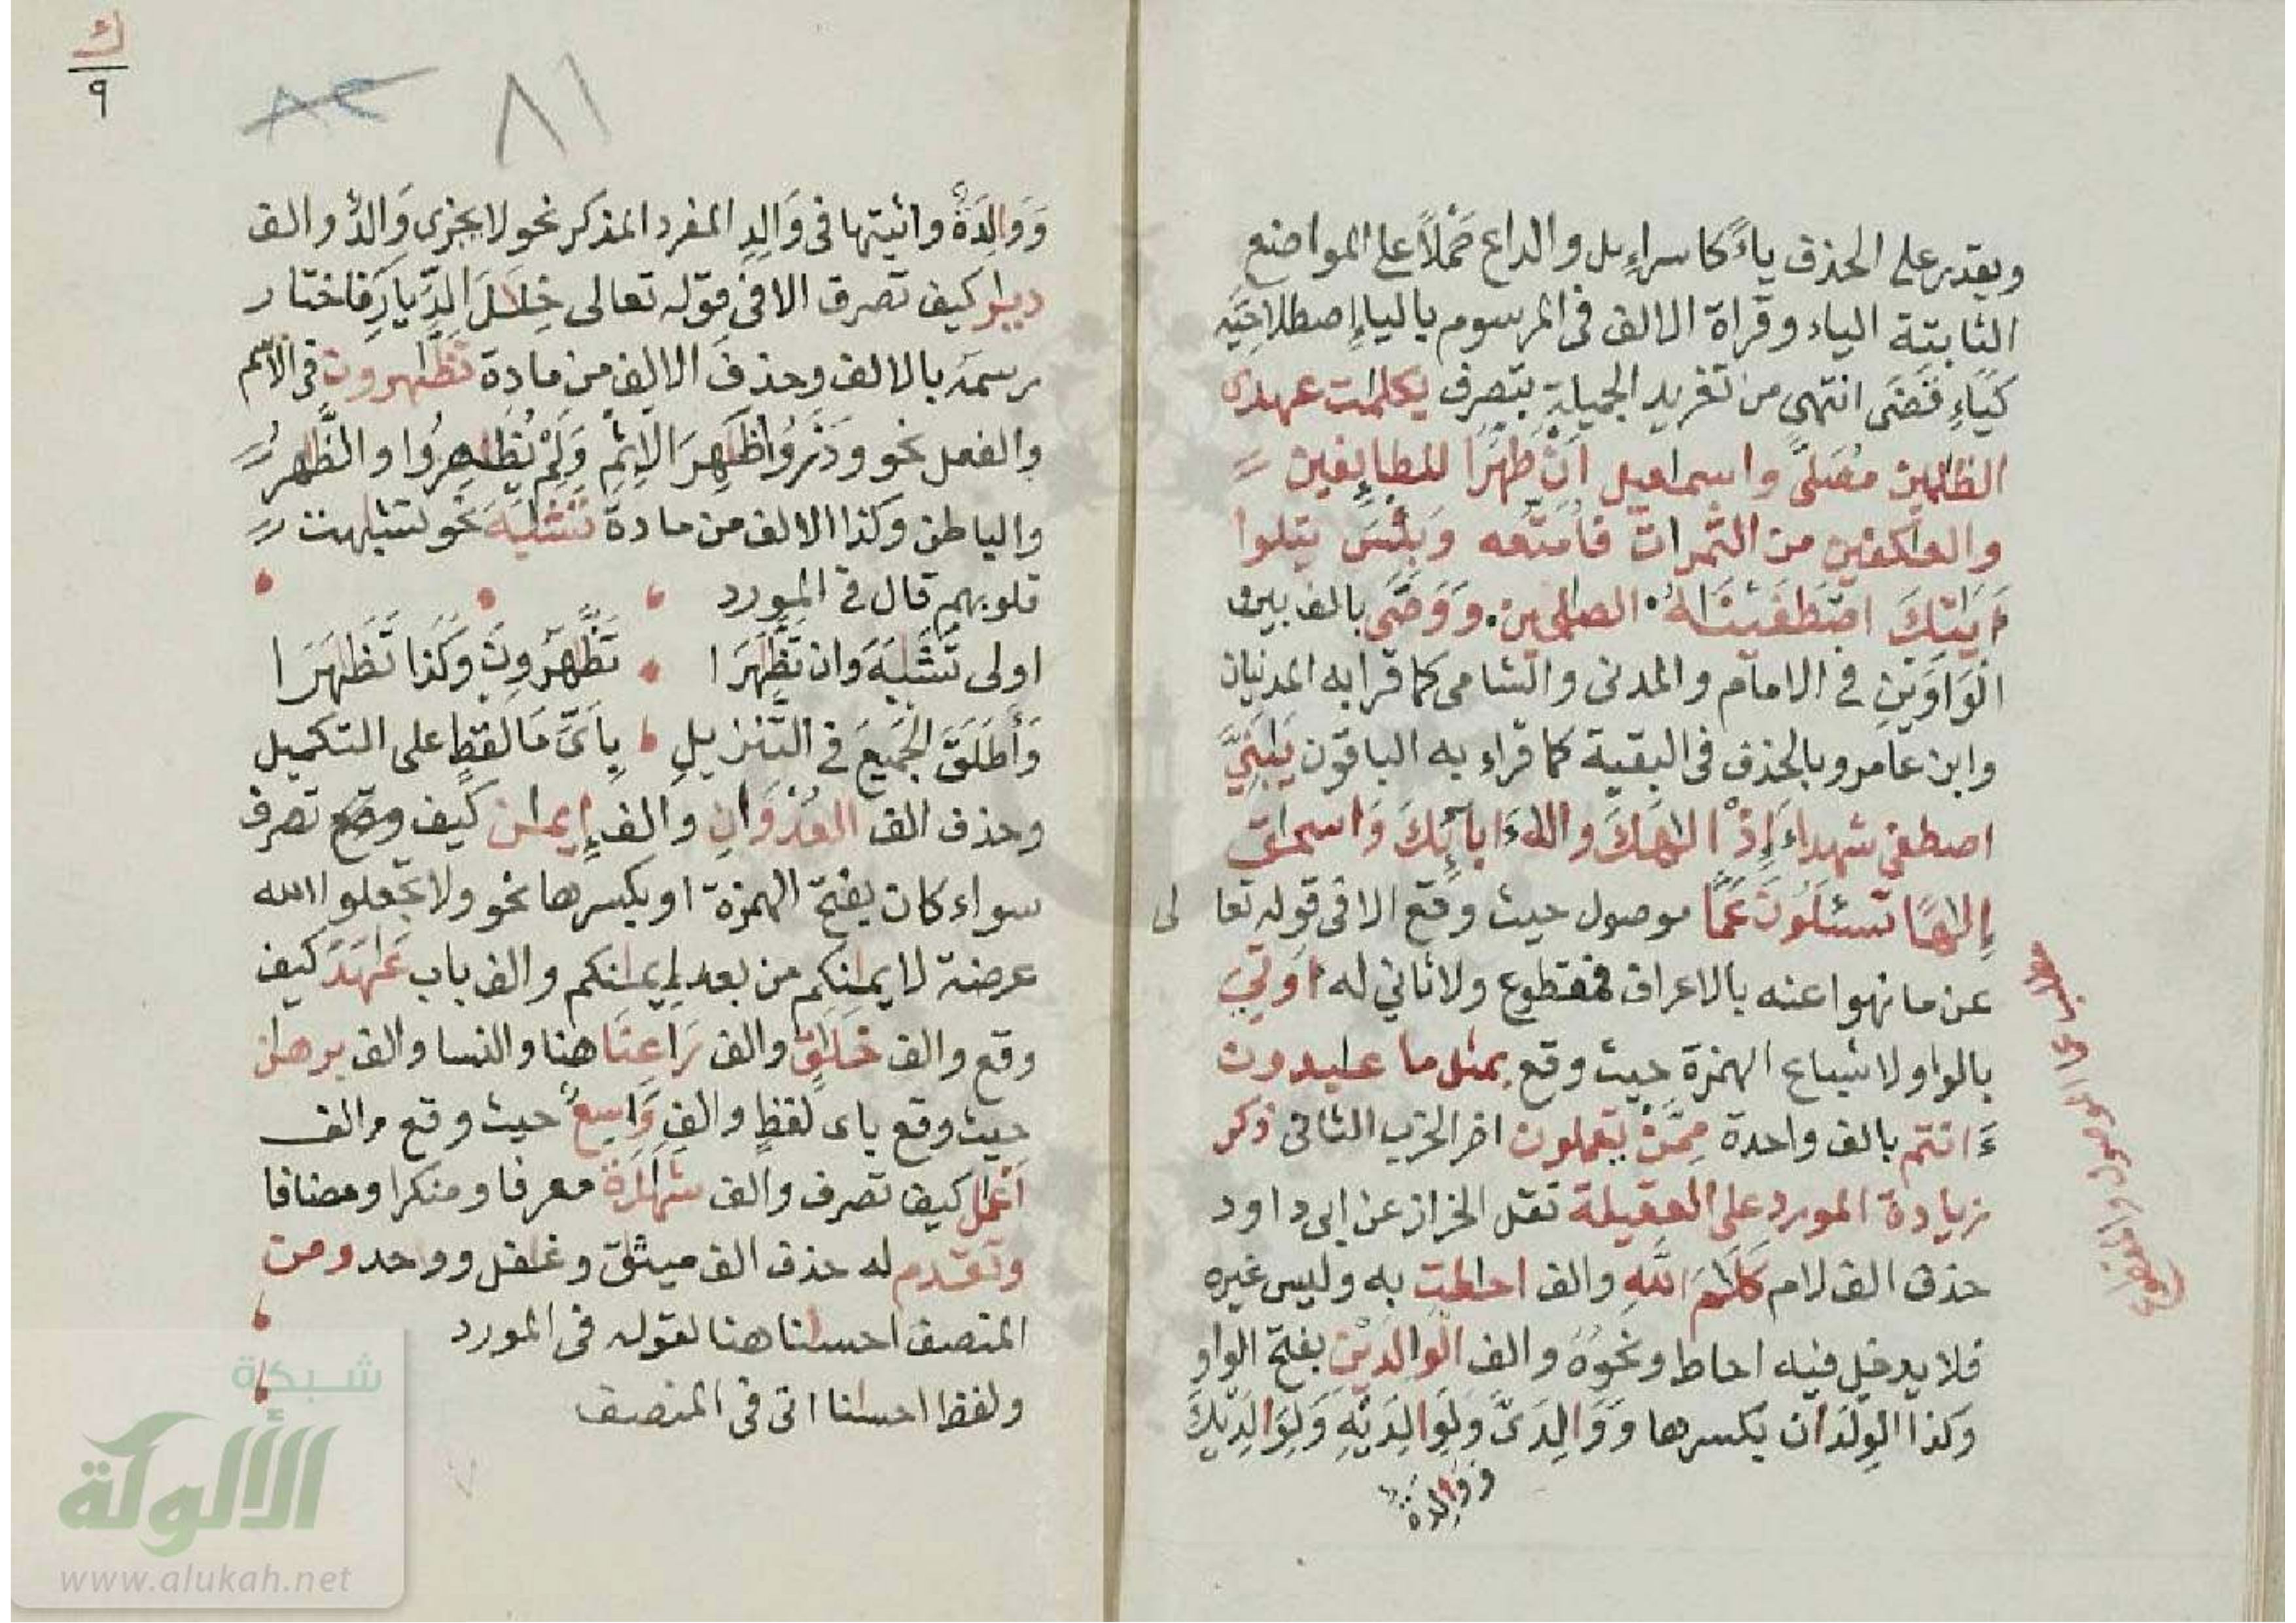 ويقدر على الحذف ياءً كاسراءيل والداع حَمْلاً على المواضع
الثابتة الياء وقراة الالف فى المرسوم بالياءِ اصطلاحَيه
كَيَاءِ فَقَضَى انتهى من تغريد الجميلةِ بتصرفٍ بكلمات عهدى
الظلمين مُصَلًى واسماعيل أَنْ طَهِّرَا للطايفين
والعاكفين من الثمرات فَأُمَتِّعُه وَبِئْسَ يتلوا
ءَايَتِكَ اصْطَفَيْنَاهُ الصالحين. وَوَصَّى بالف بين
الْوَاوَيْنِ فى الامام والمدنى والشامى كما قرا به المدنيان
وابن عامر وبالحذف فى البقية كما قراء به الباقون يَابَنِيَّ
اصطفى شهداءَ إِذْ الَهَكَ وَالَهَ ءَابَائِكَ وَاسحاق
إلهًا تسئلونَ عَمَّا موصول حيث وقع الا فى قوله تعا لى
عن ما نهوا عنه بالاعراف فمقطوع ولا ثانى له اوتِيَ
بالواو لاشباع الهمزة حيث وقع بمثل ما عابدون
ءَانتم بالف واحدة مِمَّنْ يعملون اخر الحزب الثانى ذكر
زيادة المورد على العقيلة نقل الخراز عن ابى داود
حذف الف لام كَلَامَ اللَّهِ والف احاطت به وليس غيره
فلا يدخل فيه احاط ونحوُهُ والف الْوَالِدَيْنِ بفتح الواو
وكذا الوِلْدَان بكسرها وَوَالِدَىَّ وَلِوَالِدَيْهِ وَلِوَالِدَيْكَ
وَوَالِدَةٌ
ك
٩
٨٢ ٨١
وَوَالِدَةٌ واثبتها فى وَالِدٍ المفرد المذكر نحو لا يجزى وَالِدٌ والف
ديار كيف تصرف الا فى قوله تعالى خِلَالَ الدِّيَارِ فاختار
رسمَه بالالف وحذفَ الالِف من مادة تَظَّاهرون فى الاسم
والفعل نحو وَذَرُوا ظَاهِرَ الْاِثْمِ وَلَمْ يُظَاهِرُوا والظَّاهِرُ
والباطن وكذا الالف من مادة تَشَابَهَ نحو تشابهت
قلوبهم قال فى المورد
اولى تَشَابَهَ وَان تَظَّاهَرَا تَظَّاهَرُونَ وَكَذا تَظَاهَرَا
وَأَطْلَقَ الجَمِيعَ فى التَّنْزِيلِ بِأَىِّ مَا لَفْظٍ على التكميل
وحذف الف العُدْوَانِ والف إِيمان كيف وقع تصرف
سواء كان بفتح الهمزة او بكسرها نحو ولا تجعلوا الله
عرضة لايمانكم من بعد إيمانكم والف باب عَاهَدَ كيف
وقع والف خَلَاقٍ والف رَاعِنَا هنا والنسا والف برهان
حيث وقع باى لفظٍ والفِ وَاسِعٌ حيث وقع والف
أعمال كيف تصرف والف شهادة معرفا ومنكرا ومضافا
وتقدم له حذف الف ميثاق وغافل وواحد ومن
المنصف احسانا هنا لقوله فى المورد
ولفظ احسانا اتى فى المنصف
شبكة
الألوكة
www.alukah.net